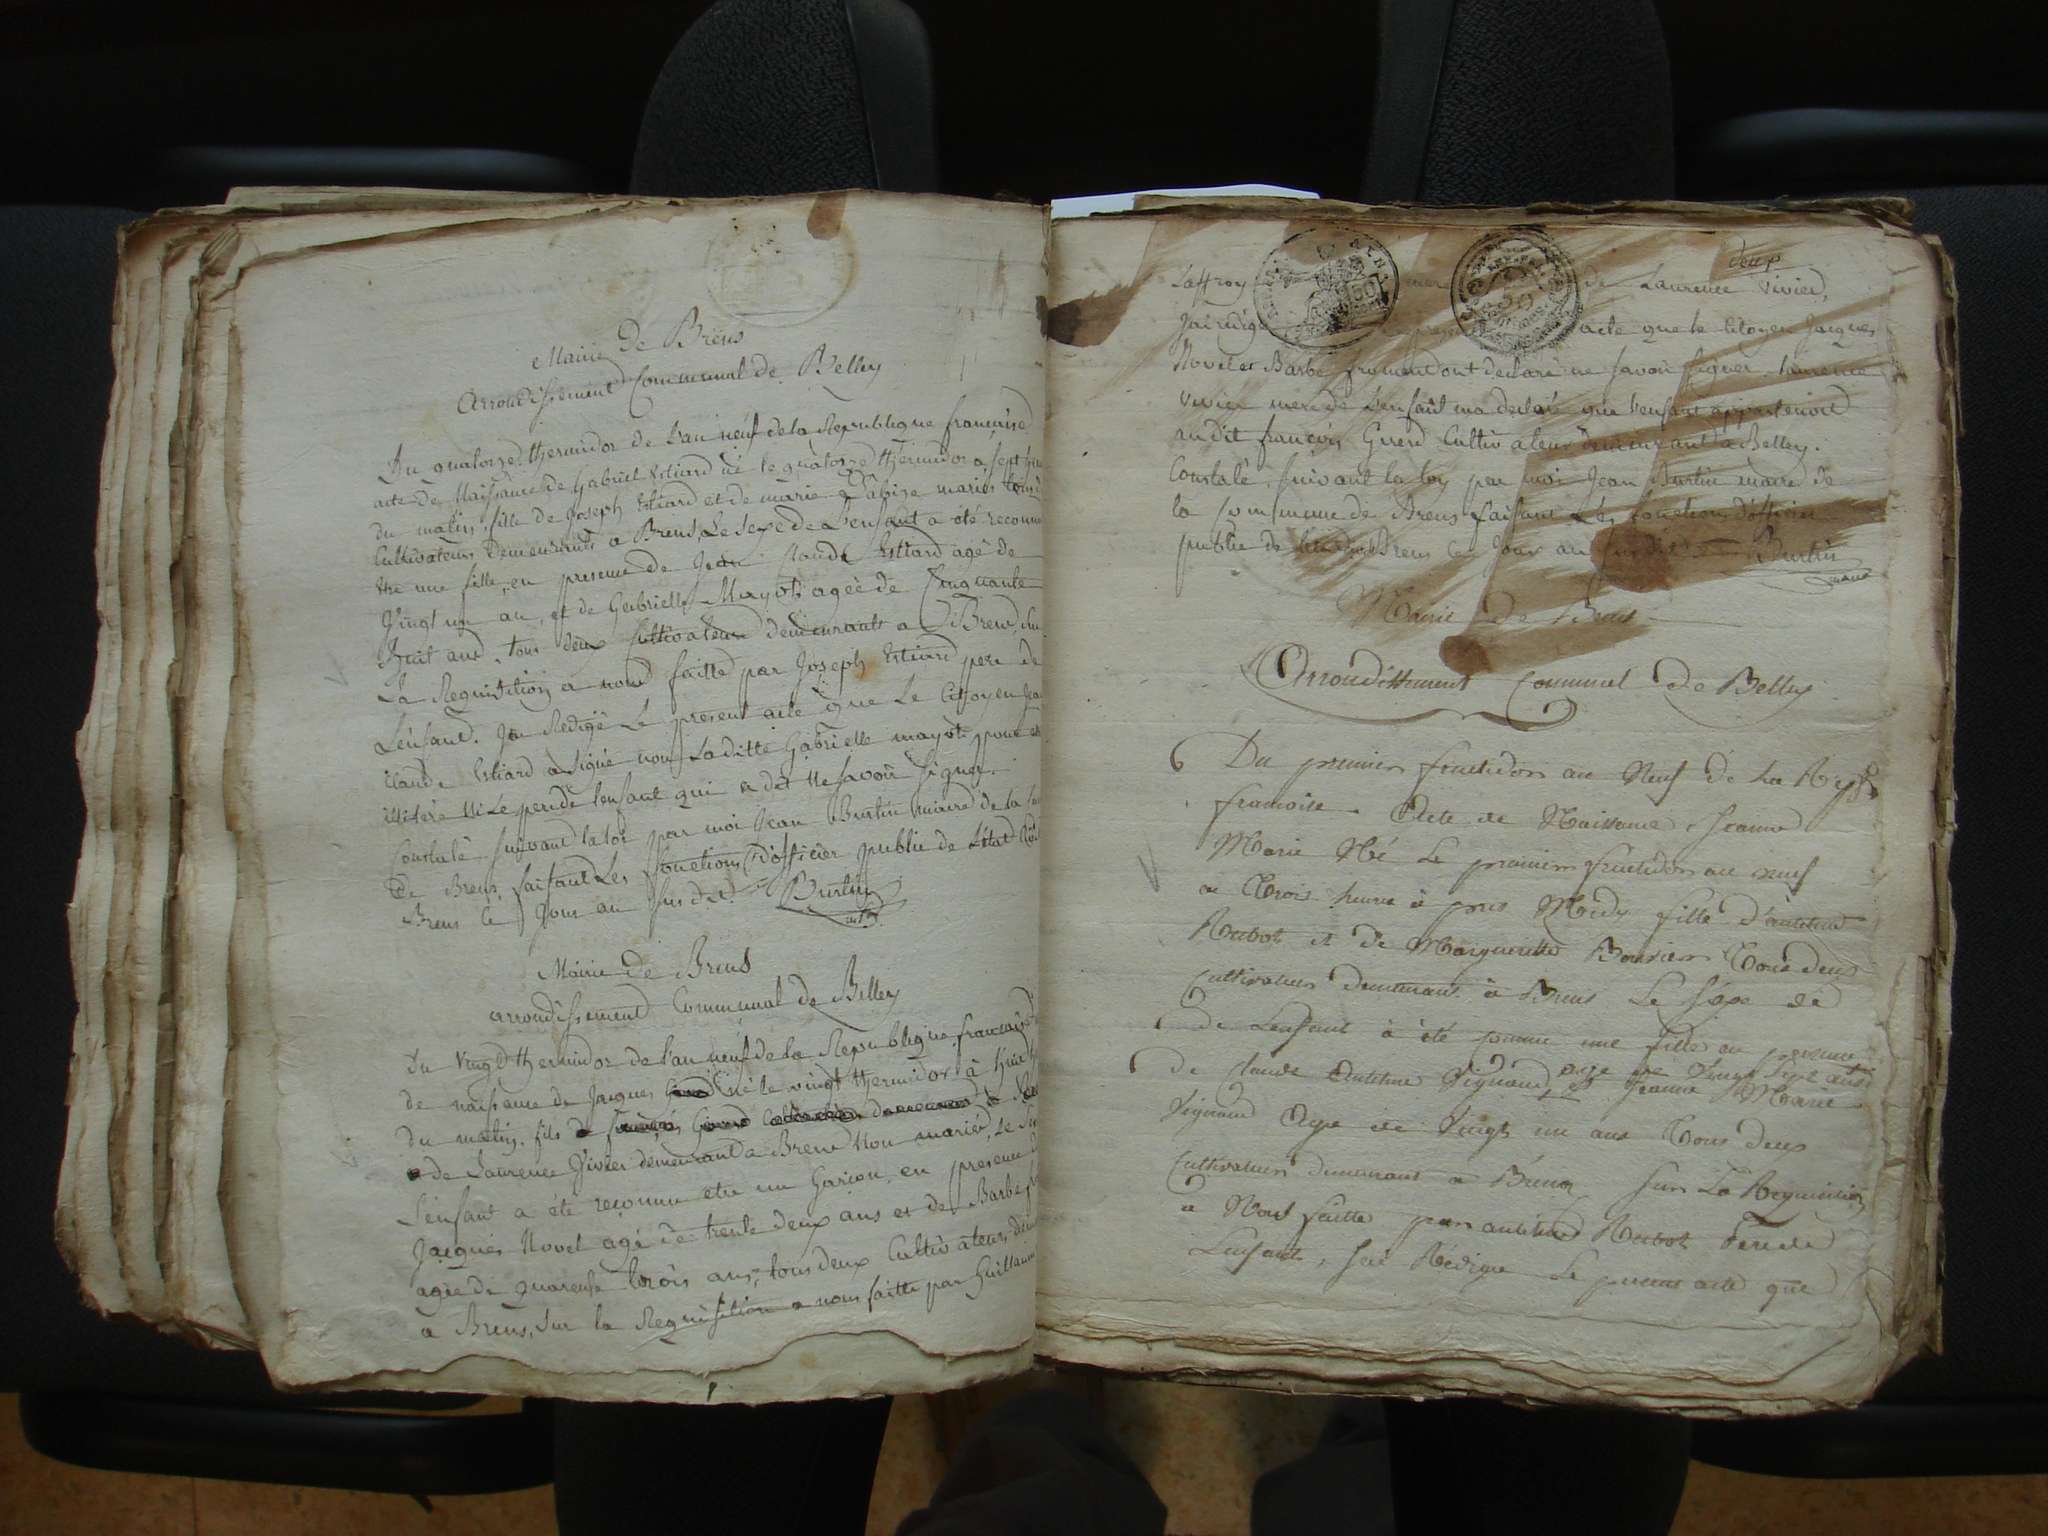 Mairie de Brens
Arrondissement Communal de Belley
Du quatorze thermidor de l'an neuf de la Republique françaisse
acte de Naissance de Gabriel Estiard né le quatorze thermidor a sept
du matin, fille de Joseph Estiard et de marie mariés tous
Cultivateurs demeurants a Brens, Le sexe de L'enfant a été reconnu
être une fille, en presence de Jean Claude Estiard agé de
Vingt un an, et de Gabrielle Mayot agée de Cinquante
huit ans, tous deux Cultivateur demeurants a Brens, Sur
La Requisition a nous faitte par Joseph Estiard pere de
Lenfand. Jai Redigé Le present acte que Le Citoyen Jean
claude Estiard a signé non Laditte Gabrielle mayot pour
illiteré Ni Le pere de lenfant qui a dit Ne savoir signer.
Constaté suivant la loi par moi Jean Burtin maire de la
de Brens faisant Les fonctions d'officier public de L'état
Brens le jour an susdit. Burtin
Mairie de Brens
arrondissement Communal de Belley
Du Vingt thermidor de l'an neuf de la Republique française
de naissance de Jacques né le vingt thermidor à huit
du matin. fils de françois Girerd
de Laurence Vivier demeurant a Brens non mariée, Le
L'enfant a été reconnu etre un Garson, en presence
Jacques Novel agé de trente deux ans et de Barbe
agée de quarente trois ans, tous deux Cultivateurs
a Brens, Sur la Requisition a nous faitte par Guillaume
deux
Laffroy de Laurence Vivier,
Jai redigé acte que le Citoyen Jacques
Novel et Barbe froment ont declaré ne savoir signer. Laurence
Vivier mere de L'enfant ma declaré que l'enfant appartenoit
au dit françois Girerd Cultivateur demeurant a Belley.
Constaté, suivant la loy par moi Jean Burtin maire de
la commune de Brens faisant Les fonctions d'officier
public de Brens les jour an susdit Burtin
maire
Mairie de Brens
Arrondissement Communal de Belley
Du premier fructidor an Neuf de La Repe
francoise Acte de Naissance Jeanne
Marie Né Le premier fructidor an neuf
a Trois heure à pres Midy fille d'antelme
Rubot et de Marguerite Bouvier Tous deux
Cultivateur demeurant à Brens Le sexe de
de Lenfant à été connu une fille en presence
de Claude Antelme Vignand, age de vingt sept ans et Jeanne Marie
Vignand Agee de Vingt un ans Tous deux
Cultivateurs demeurant a Brens Sur La Requisition
a Nous faitte par antelme Rubot Pere de
Lenfant, Jai Rédigé Le present acte que